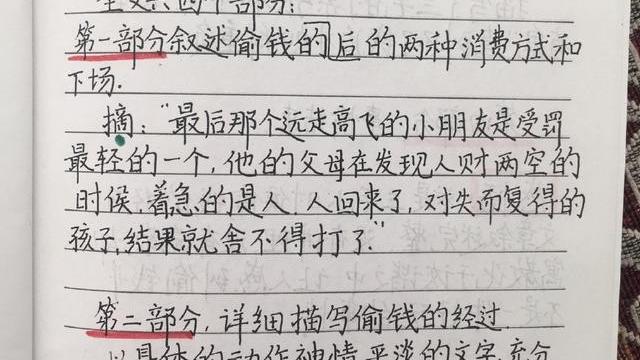 全文共四个部分:
第一部分叙述偷钱的后的两种消费方式和
下场.
摘:“最后那个远走高飞的小朋友是受罚
最轻的一个,他的父母在发现人财两空的
时候,着急的是人.人回来了,对失而复得的
孩子,结果就舍不得打了.”
第二部分,详细描写偷钱的经过.
以具体的动作神情平淡的文字,充分